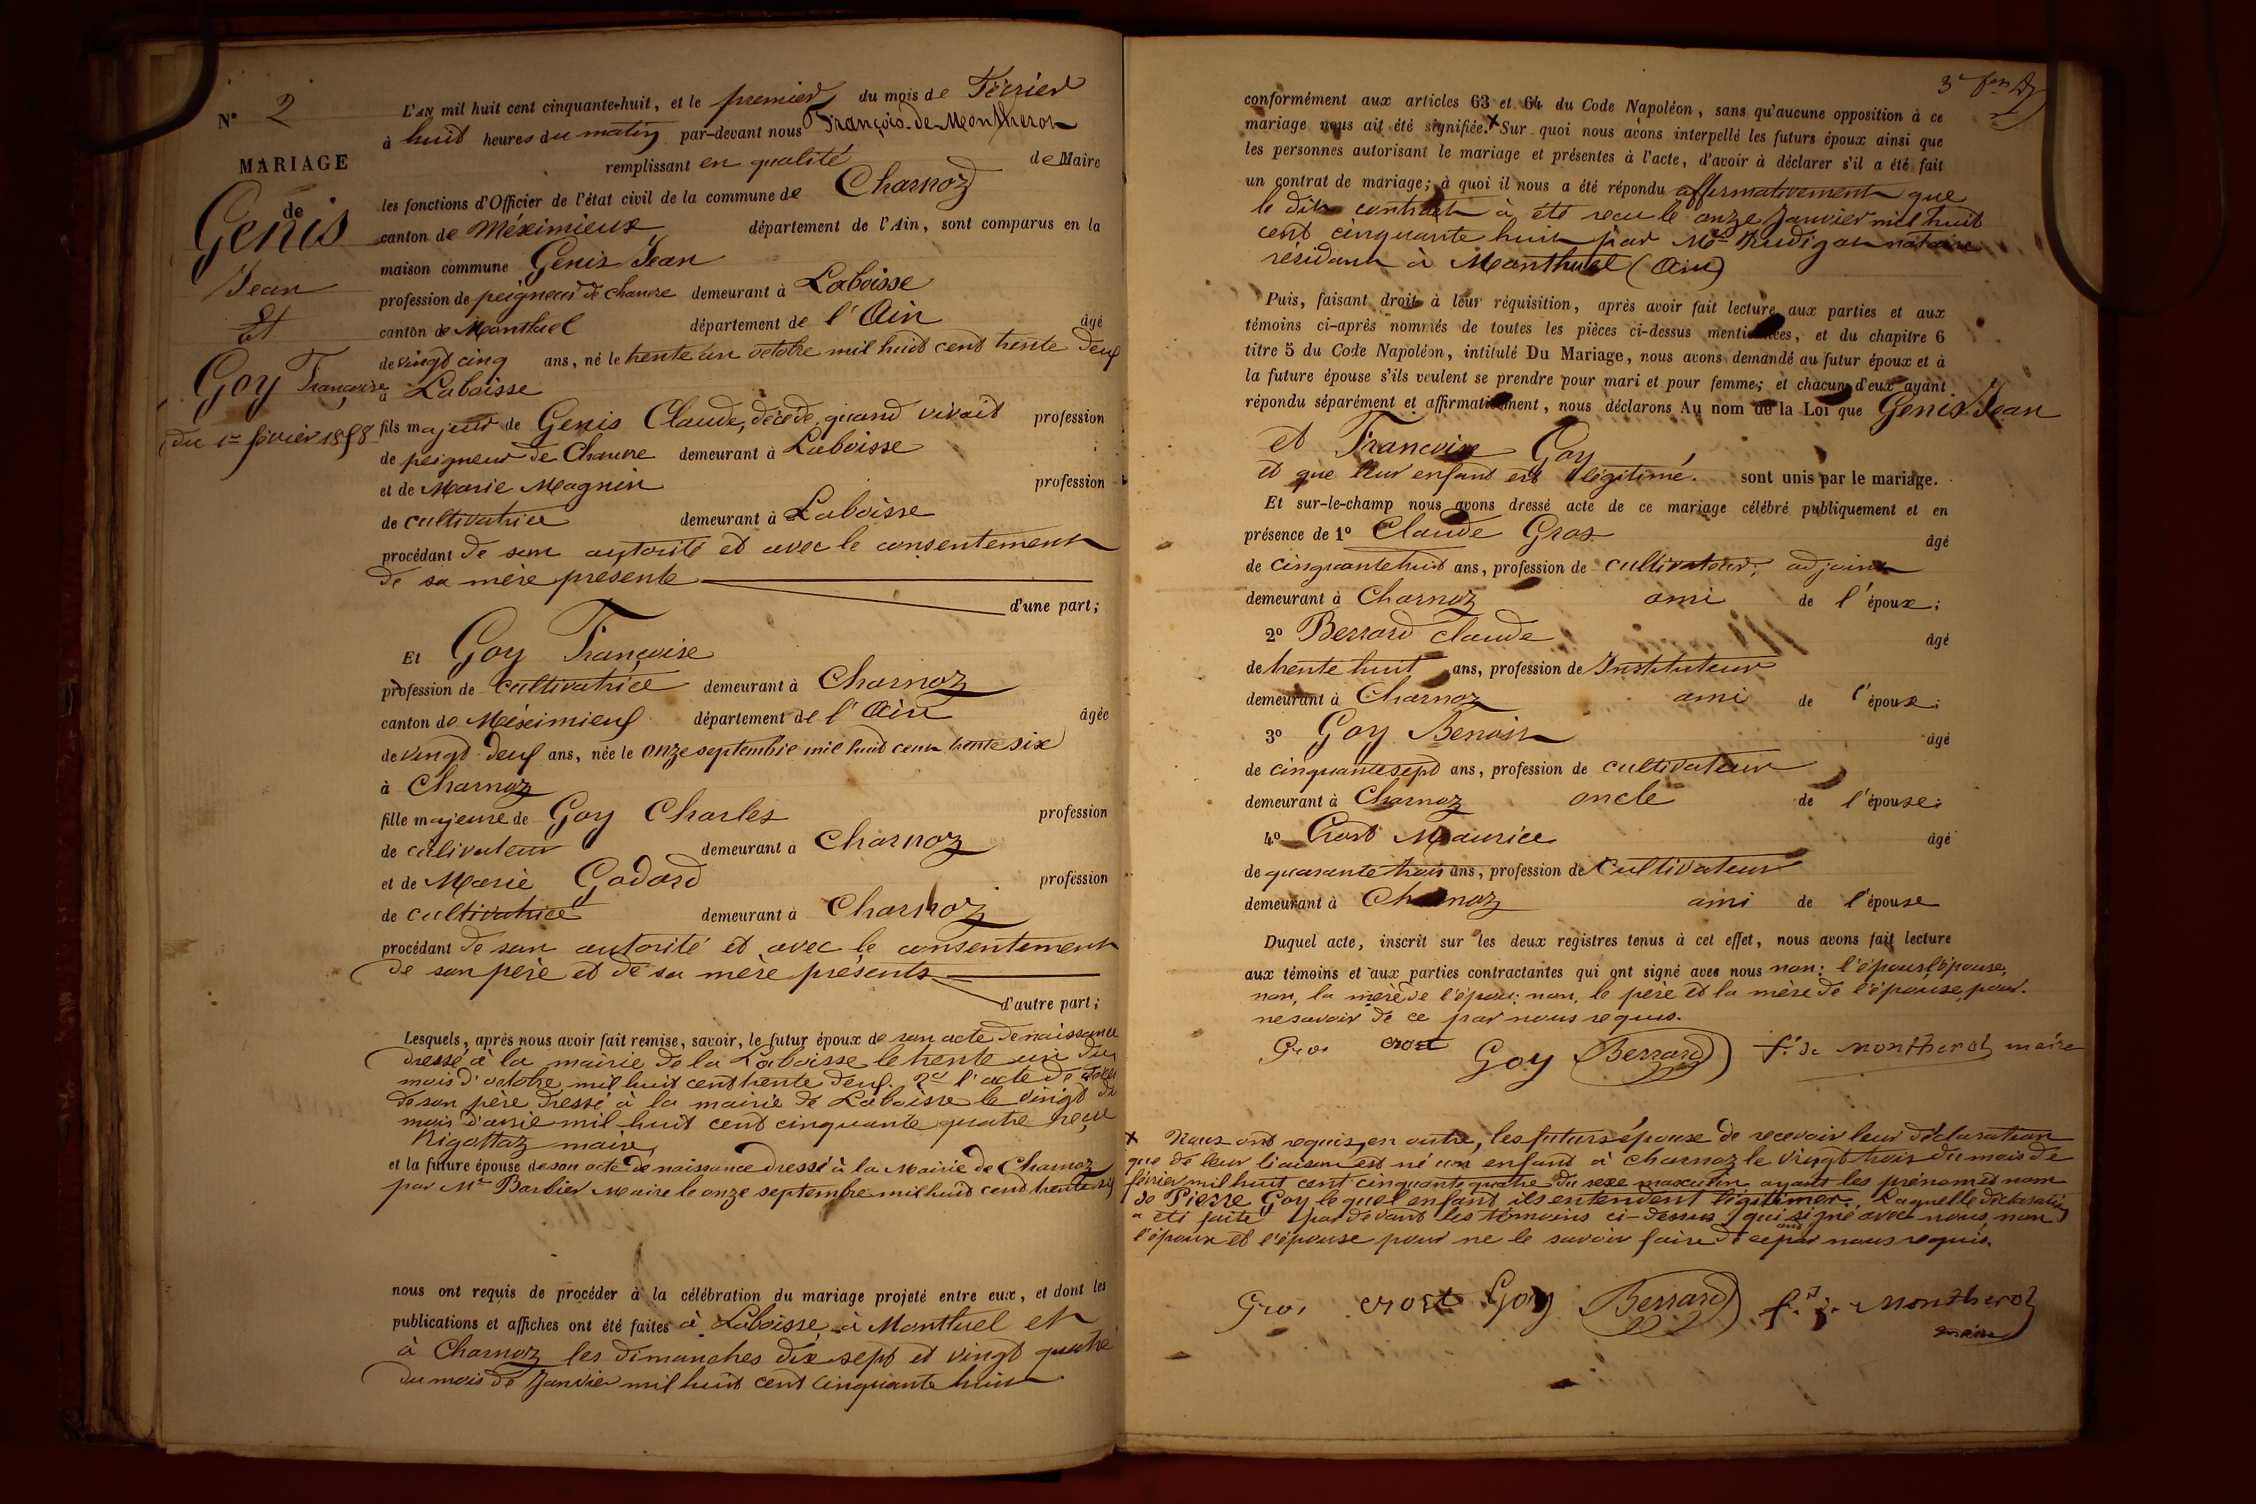 N° 2
MARIAGE
de
Genis
Jean
et
Goy Françoise
du 1er février 1858
L'AN mil huit cent cinquante-huit, et le premier du mois de Février
à huit heures du matin par-devant nous François de Montherot
remplissant en qualité de Maire
les fonctions d'Officier de l'état civil de la commune de Charnoz
canton de Méximieux département de l'Ain, sont comparus en la
maison commune Genis Jean
profession de peigneur de chanvre demeurant à Laboisse
canton de Montluel département de l'Ain âgé
de vingt cinq ans, né le trente un octobre mil huit cent trente deux
à Laboisse
fils majeur de Genis Claude, décédé, quand vivait profession
de peigneur de Chanvre demeurant à Laboisse
et de Marie Magnin profession
de cultivatrice demeurant à Laboisse
procédant de son autorité et avec le consentement
de sa mère présente
d'une part;
Et Goy Françoise
profession de cultivatrice demeurant à Charnoz
canton de Méximieux département de l'Ain âgée
de vingt deux ans, née le onze septembre mil huit cent trente six
à Charnoz
fille majeure de Goy Charles profession
de culivateur demeurant à Charnoz
et de Marie Godard profession
de cultivatrice demeurant à Charnoz
procédant de son autorité et avec le consentement
de son père et de sa mère présents
d'autre part;
Lesquels, après nous avoir fait remise, savoir, le futur époux de son acte de naissance
dressé à la mairie de la Laboisse le trente un du
mois d'octobre mil huit cent trente deux. 2° l'acte de décès
de son père dressé à la mairie de Laboisse le vingt du
mois d'avril mil huit cent cinquante quatre reçu
Rigottaz maire,
et la future épouse de son acte de naissance dressé à la Mairie de Charnoz
par Mr Barbier Maire le onze septembre mil huit cent trente six
nous ont requis de procéder à la célébration du mariage projeté entre eux, et dont les
publications et affiches ont été faites à Laboisse, à Montluel et
à Charnoz les dimanches dix sept et vingt quatre
du mois de Janvier mil huit cent cinquante huit
conformément aux articles 63 et 64 du Code Napoléon, sans qu'aucune opposition à ce
mariage nous ait été signifiée. x Sur quoi nous avons interpellé les futurs époux ainsi que
les personnes autorisant le mariage et présentes à l'acte, d'avoir à déclarer s'il a été fait
un contrat de mariage; à quoi il nous a été répondu affirmativement que
le dit contrat à été recu le onze janvier mil huit
cent cinquante huit par Me notaire
résidant à Monthuel (Ain)
Puis, faisant droit à leur réquisition, après avoir fait lecture aux parties et aux
témoins ci-après nommés de toutes les pièces ci-dessus mentionnées, et du chapitre 6
titre 5 du Code Napoléon, intitulé Du Mariage, nous avons demandé au futur époux et à
la future épouse s'ils veulent se prendre pour mari et pour femme; et chacun d'eux ayant
répondu séparément et affirmativement, nous déclarons Au nom de la Loi que Genis Jean
et Françoise Goy
et que leur enfant est légitimé. sont unis par le mariage.
Et sur-le-champ nous avons dressé acte de ce mariage célébré publiquement et en
présence de 1° Claude Gros âgé
de cinquante huit ans, profession de cultivateur, adjoint
demeurant à Charnoz ami de l'époux;
2° Berrard Claude âgé
de trente huit ans, profession de Instituteur
demeurant à Charnoz ami de l'époux;
3° Goy Benoit âgé
de cinquante sept ans, profession de cultivateur
demeurant à Charnoz oncle de l'épouse;
4° Crost Maurice âgé
de quarante trois ans, profession de Cultivateur
demeurant à Charnoz ami de l'épouse
Duquel acte, inscrit sur les deux registres tenus à cet effet, nous avons fait lecture
aux témoins et aux parties contractantes qui ont signé avec nous non: l'époux l'épouse,
non, la mère de l'époux: non, le père et la mère de l'épouse, pour
ne savoir de ce par nous requis.
Gros crost Goy Berrard f. de Montherot maire
x Nous ont requis, en outre, les futurs époux de recevoir leur déclaration
que de leur liaison est né un enfant à Charnoz le vingt trois du mois de
février mil huit cent cinquante quatre du sexe masculin ayant les prénom et nom
de Pierre Goy lequel enfant ils entendent légitimer. Laquelle déclaration
a été faite par devant les témoins ci-dessus qui ont signé avec nous, non
l'époux et l'épouse pour ne le savoir faire de ce par nous requis.
Gros crost Goy Berrard f. de Montherot
maire